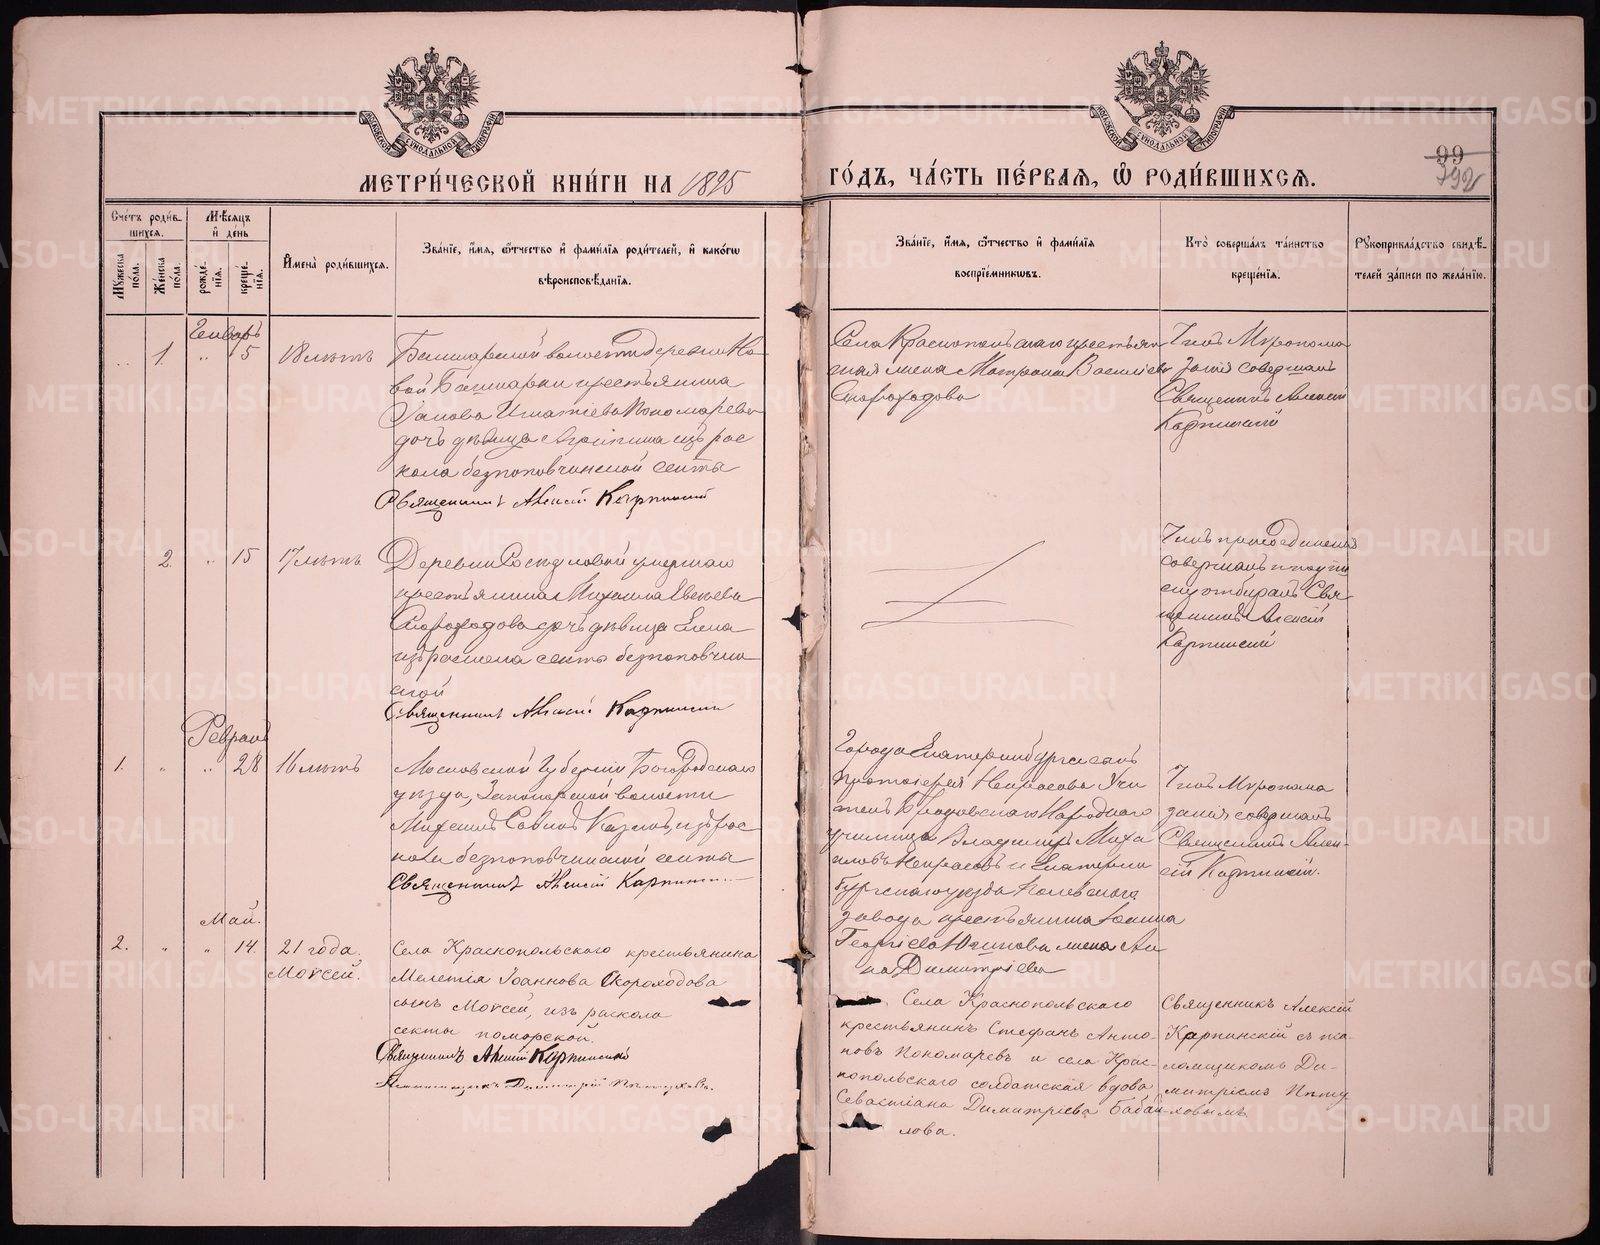 МЕТРИ́ЧЕСКОЙ КНИ́ГИ НА 1895
ГО́ДЪ, ЧА́СТЬ ПЕ́РВАЯ, Ѽ РОДИ́ВШИХСѦ.
99
792
МОСКОВСКОЙ СѴНОДАЛЬНОЙ ТИПОГРАФІИ
МОСКОВСКОЙ СѴНОДАЛЬНОЙ ТИПОГРАФІИ
Сче́тъ роди́в-
шихсѧ.
Мѣ́сяцъ
и҆ де́нь
Мꙋ́жеска
по́ла.
Же́нска
по́ла.
рожде́-
нїѧ.
креще́-
нїѧ.
И҆мена̀ роди́вшихсѧ.
Зва́нїе, и҆́мѧ, ѻ҆́тчество и҆ фами́лїѧ роди́телей, и҆ како́гѡ
вѣроисповѣ́данїѧ.
Зва́нїе, и҆́мѧ, ѻ҆́тчество и҆ фами́лїѧ
воспрїе́мниковъ.
Кто̀ соверша́лъ та́инство
креще́нїѧ.
Рꙋкоприкла́дство свидѣ́-
телей за́писи по жела́нїю.
Генварь
1. " 5
18 лѣтъ
Башкарской волости деревни Но-
вой Башкарки крестьянина
Іакова Игнатіева Пономарева
дочь дѣвица Агрипина изъ рас
кола безпоповчинской секты
Священникъ Алексій Карпинскій
Села Краснопольскаго крестьян
ская жена Матрона Василіева
Скороходова
Чинъ Муропома
занія совершалъ
Священникъ Алексій
Карпинскій
2. " 15
17 лѣтъ
Деревни умершаго
крестьянина
Скороходова дочь дѣвица Елена
изъ раскола секты безпоповчин
ской
Священникъ Алексій Карпинскій
Чинъ присоединенія
совершалъ и
отбиралъ Свя
щенникъ Алексій
Карпинскій
Февраль
1. " " 28
16 лѣтъ
Московской Губерніи Богородскаго
уѣзда, Запонорской волости
Михаилъ Саввинъ изъ рас
кола безпоповчинской секты
Священникъ Алексій Карпинскій
Города Екатеринбурга сынъ
Протоіерея Некрасова Учи
тель Народнаго
училища Владиміръ Миха
иловъ Некрасовъ и Екатерин
бургскаго уѣзда
завода крестьянина Іоанна
Георгіева жена Ан
на Димитріева
Чинъ Муропома
занія совершалъ
Священникъ Алек-
сій Карпинскій.
Май.
2. " " 14.
21 года.
Моѵсей.
Села Краснопольскаго крестьянина
Мелетія Іоаннова Скороходова
сынъ Моѵсей, изъ раскола
секты поморской.
Священникъ Алексій Карпинскій
Псаломщикъ Димитрій Птуховъ.
Села Краснопольскаго
крестьянинъ Стефанъ Анто-
новъ Пономаревъ и села Крас-
нопольскаго солдатская вдова
Севастіана Димитріева Бабай-
лова.
Священникъ Алексій
Карпинскій съ пса-
ломщикомъ Ди-
митріемъ Пту
ховымъ
METRIKI.GASO-URAL.RU